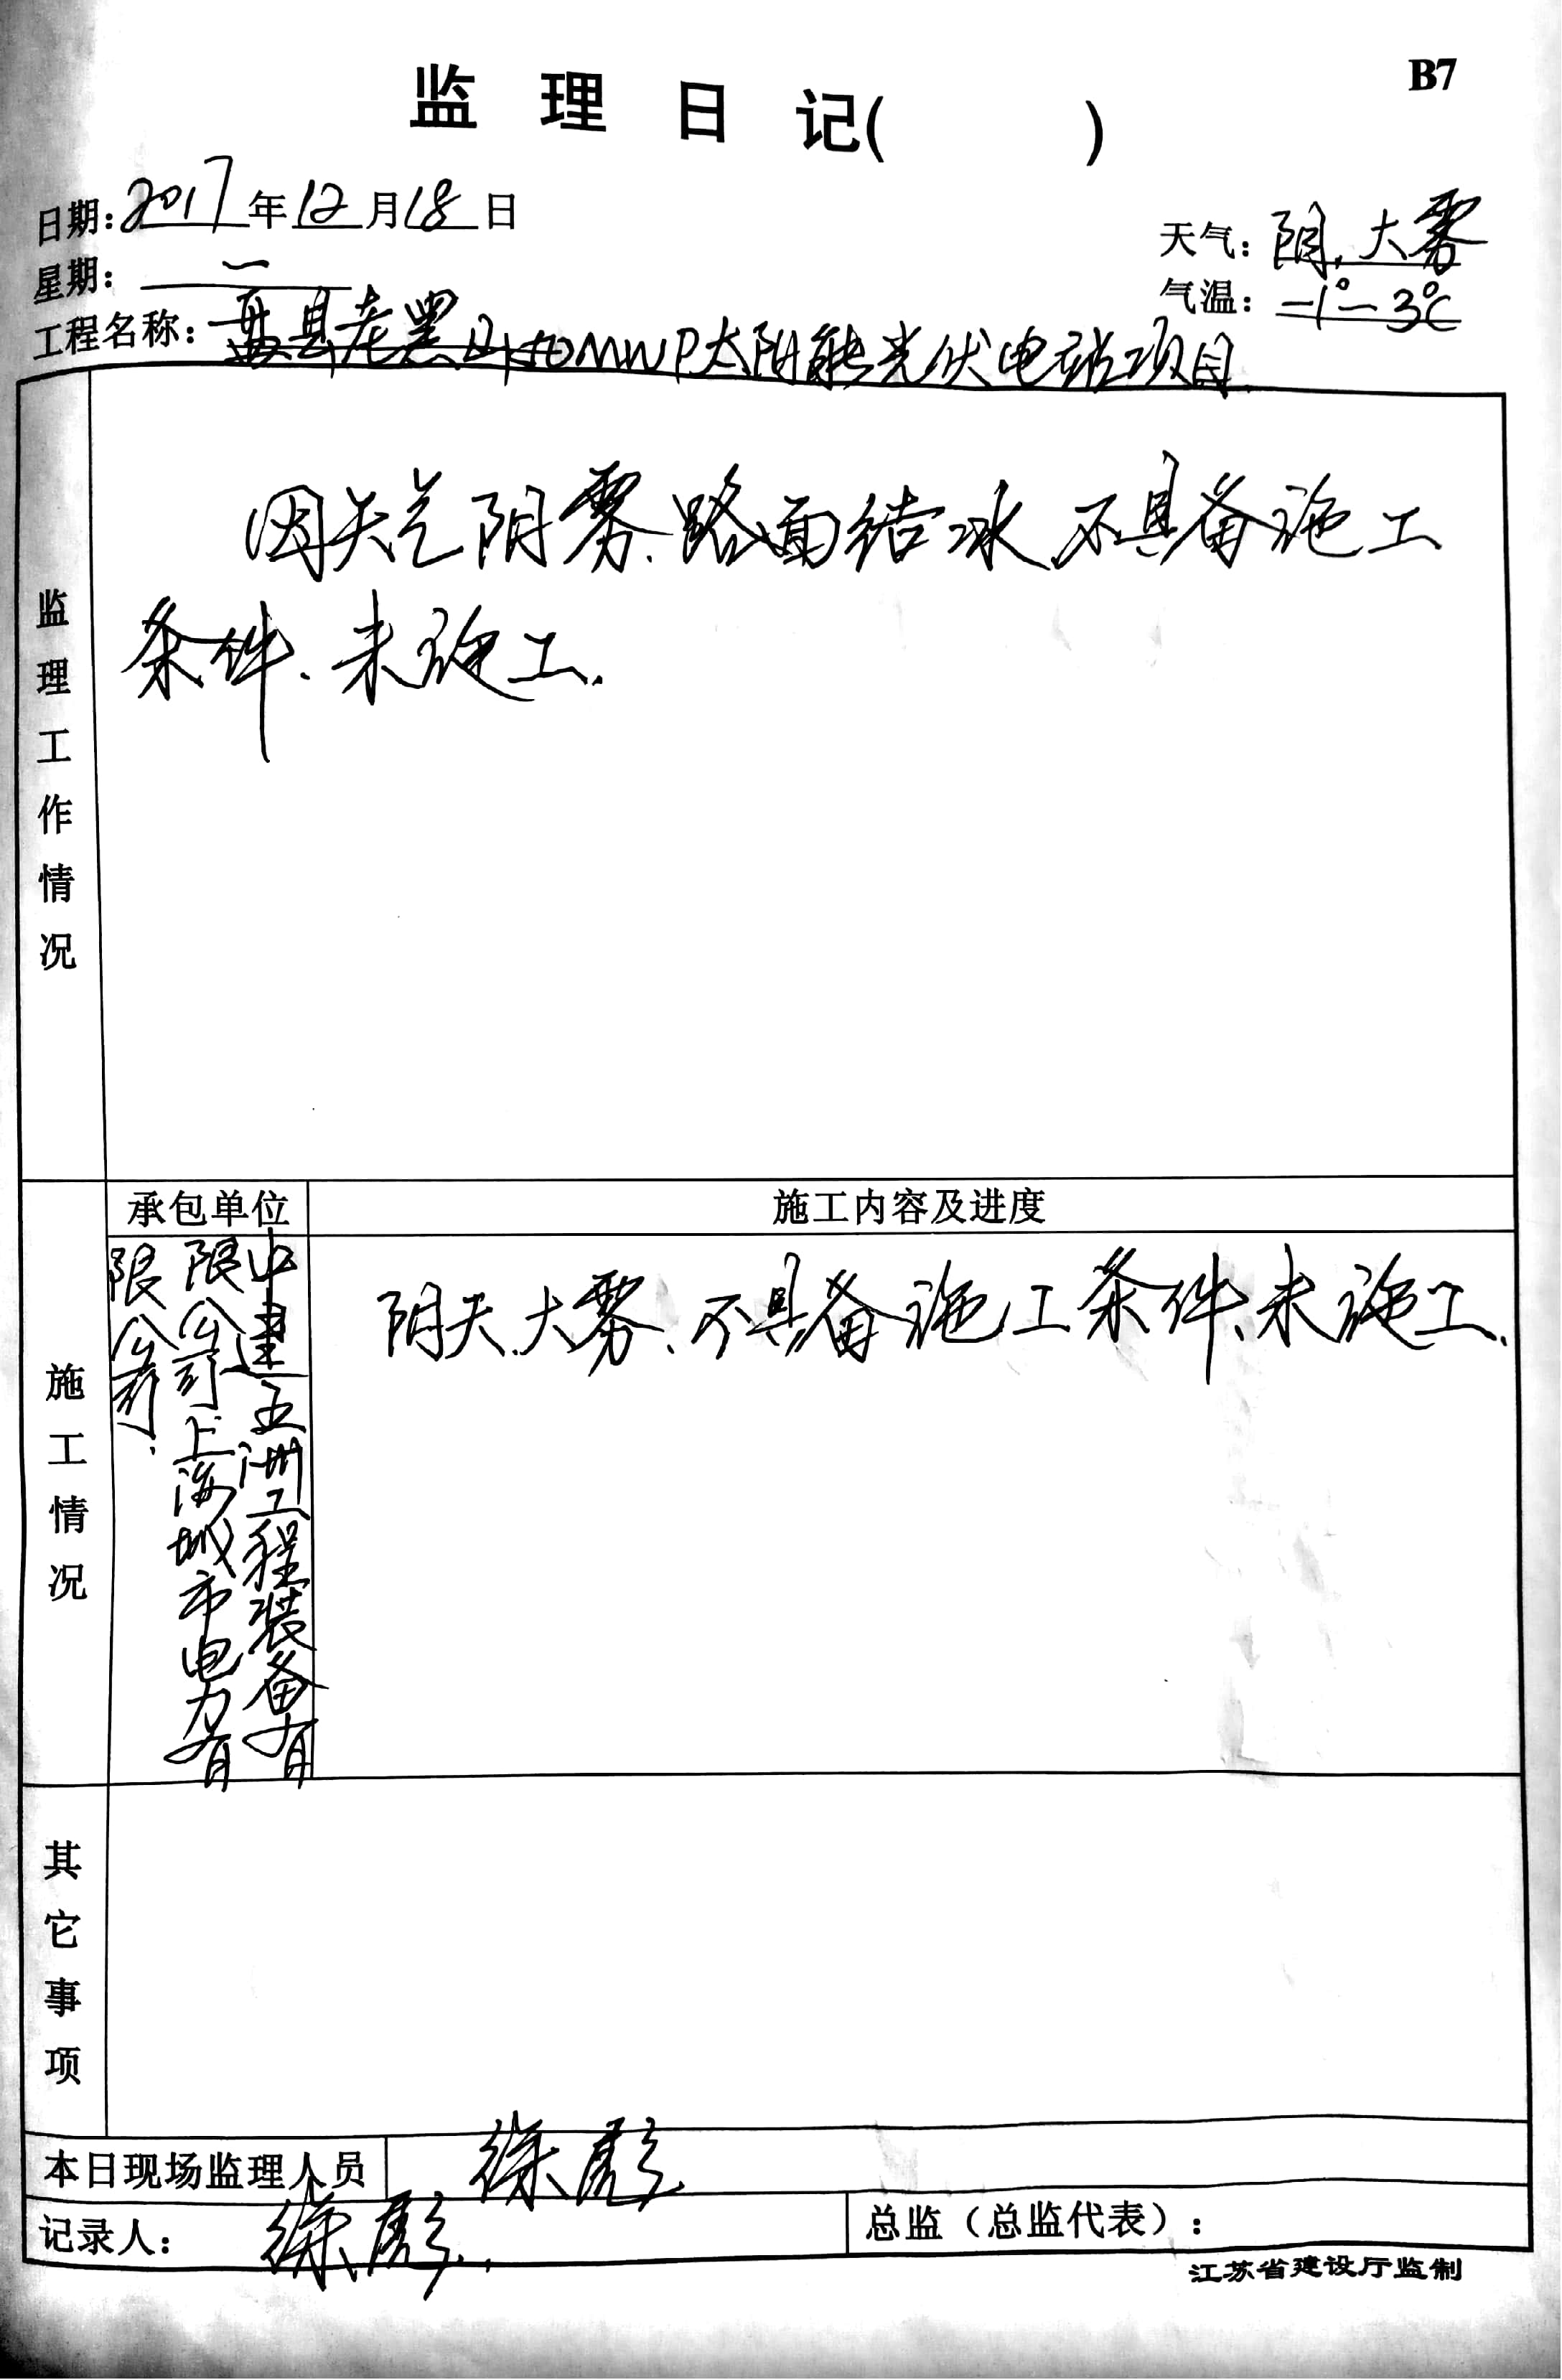 B7
监理日记( )
日期:2017年12月18日
天气:阴.大雾
星期:一
气温:-1°-3℃
工程名称:盘县老黑山50MWP太阳能光伏电站项目
监理工作情况
因天气阴雾.路面结冰.不具备施工
条件.未施工.
施工情况
承包单位
施工内容及进度
中建五洲工程装备有
限公司上海城市电力有
限公司.
阴天.大雾.不具备施工条件.未施工.
其它事项
本日现场监理人员
徐彪
记录人:徐彪.
总监(总监代表):
江苏省建设厅监制